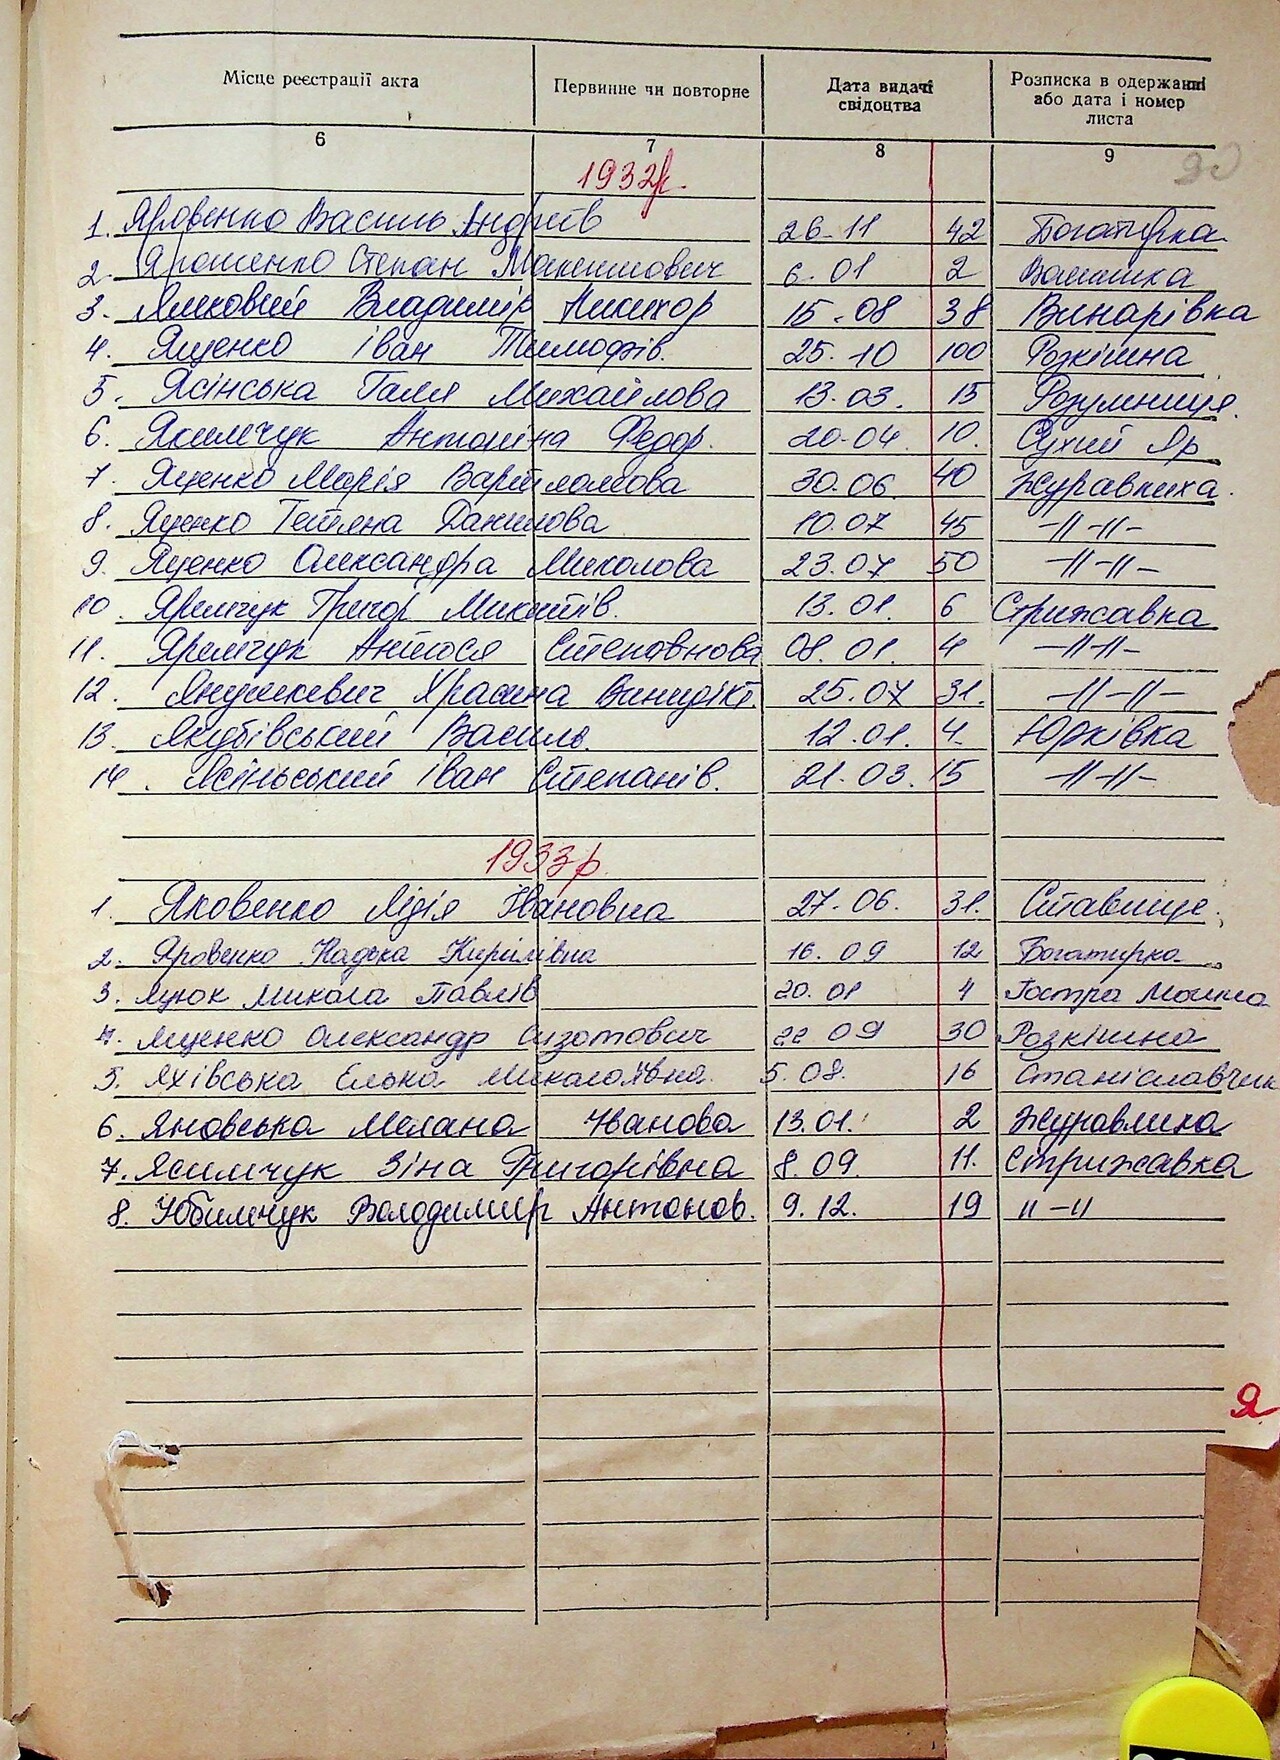 Місце реєстрації акта Первинне чи повторне Дата видачі свідоцтва Розписка в одержанні або дата і номер листа
6 7 8 9
1932р.
1. Яровенко Василь Андріїв 26-11 42 Богатирка
2. Ярошенко Степан Максимович 6.01 2 Вашика
3. Яликовий Владимір Никихор 15.08 38 Винарівка
4. Яценко Іван Тимофів. 25.10 100 Розкішна
5. Ясінська Галя Михайлова 13.03. 15 Розумниця.
6. Якимчук Антоніна Федор. 20.04. 10. Сухий Яр
7. Яценко Марія Вартоломова 30.06. 40 Журавлиха.
8. Яценко Тетяна Данилова 10.07 45 -//-//-
9. Яценко Олександра Миколова 23.07 50 -//-//-
10. Яремчук Григор Микитів. 13.01. 6 Стрижавка
11. Яремчук Антося Степовнова 08.01. 4 -//-//-
12. Янушкевич 25.07 31. -//-//-
13. Якубівський Василь. 12.01. 4. Юрківка
14. Ясінський Іван Степанів. 21.03. 15 -//-//-
1933р.
1. Яковенко Лідія Івановна 27.06. 31. Ставище.
2. Яровенко Надька Кирилівна 16.09 12 Богатирка
3. Яцюк Микола Павлів 20.01 4 Гостра Могила
4. Яценко Олександр Сизотович 22 09 30 Розкішна
5. Яхівська Єлька Миколаївна. 5.08. 16 Станіславчик
6. Яновська Мелана Іванова 13.01. 2 Журавлиха
7. Ясимчук Зіна Григорівна 8.09. 11. Стрижавка
8. Юбимчук Володимир Антонов. 9.12. 19 //-//
Я